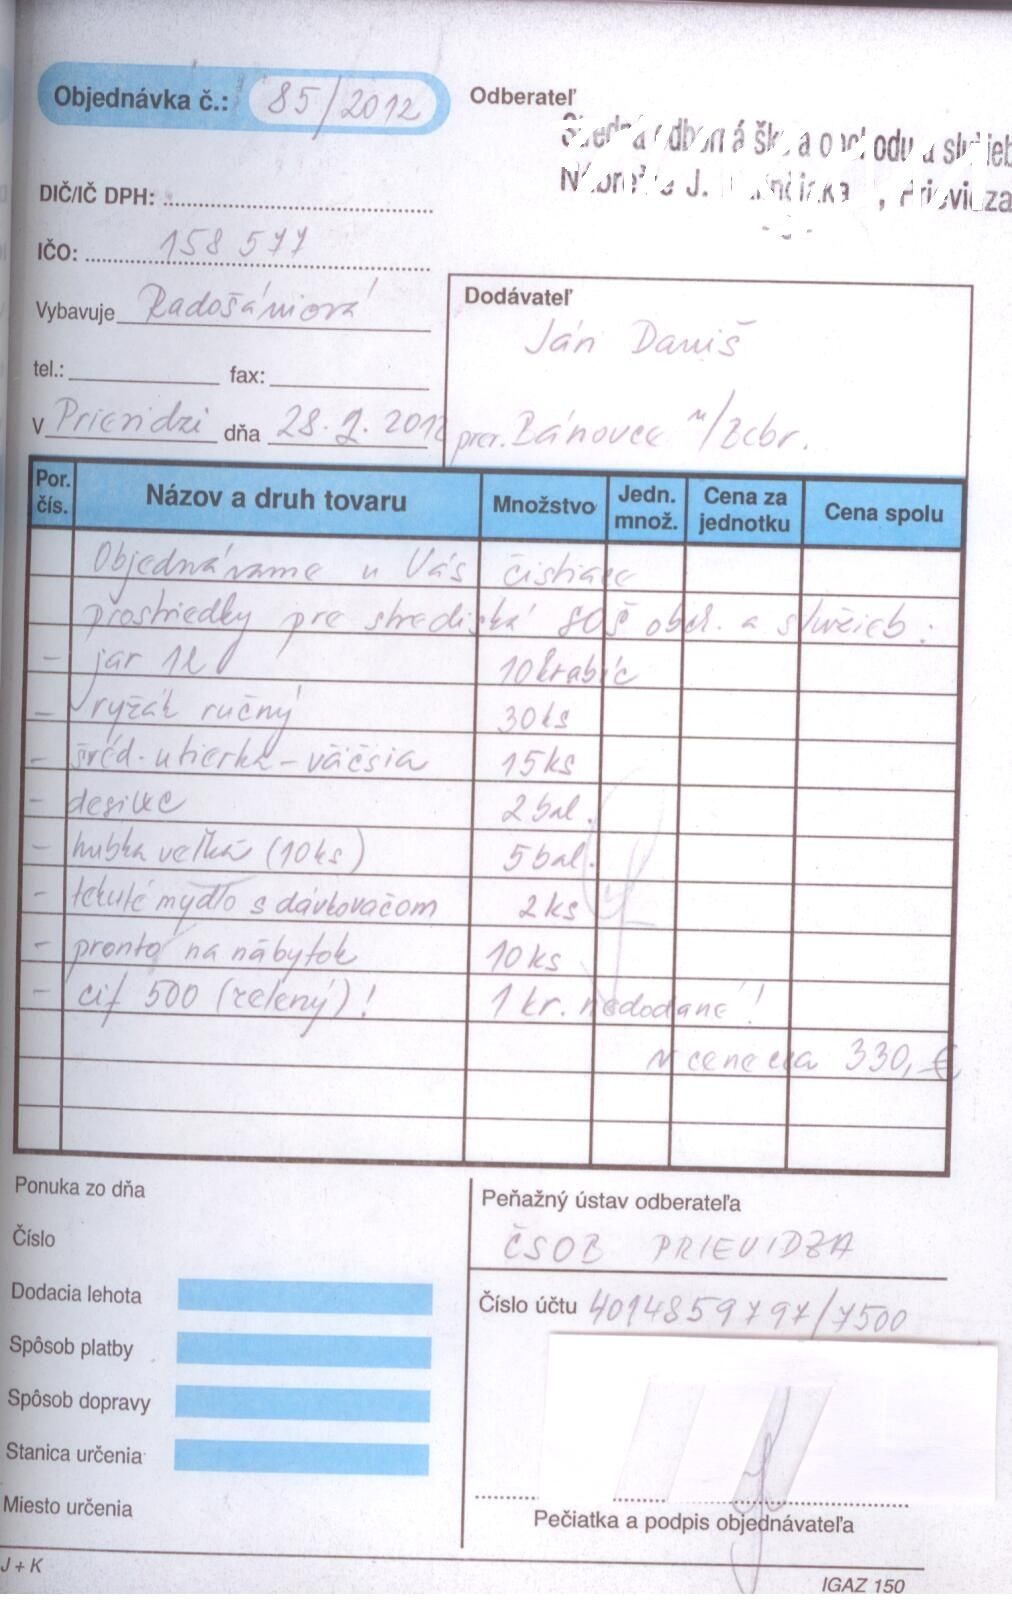 Objednávka č.: 85/2012
Odberateľ
Stredná odborná škola obchodu a služieb
Nábrežie J. Prievidza
DIČ/IČ DPH:
IČO: 158 577
Vybavuje Radošániová
tel.: fax:
V Prievidzi dňa 28. 9. 2012
Dodávateľ
Ján Daniš
prev. Bánovce n/Bebr.
Por. čís. Názov a druh tovaru Množstvo Jedn. množ. Cena za jednotku Cena spolu
Objednávame u Vás čistiace
prostriedky pre strediská SOŠ obch. a služieb:
- jar 1l 10 krabíc
- ryžák ručný 30 ks
- švéd. utierka - väčšia 15 ks
- 2 bal.
- hubka veľká (10 ks) 5 bal.
- tekuté mydlo s dávkovačom 2 ks
- pronto na nábytok 10 ks
- cif 500 (zelený)! 1 kr. nedodané!
v cene cca 330,€
Ponuka zo dňa
Číslo
Dodacia lehota
Spôsob platby
Spôsob dopravy
Stanica určenia
Miesto určenia
Peňažný ústav odberateľa
ČSOB PRIEVIDZA
Číslo účtu 4014859797/7500
Pečiatka a podpis objednávateľa
J + K
IGAZ 150